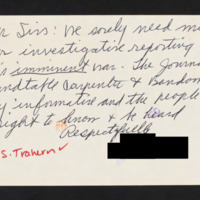 Sirs: We sorely need m
investigative reporting
imminent war. The Journ
ndtable Carpenter & Bandom
informative and the people
right to know & be heard
Respectfully
S. Trahern ✓